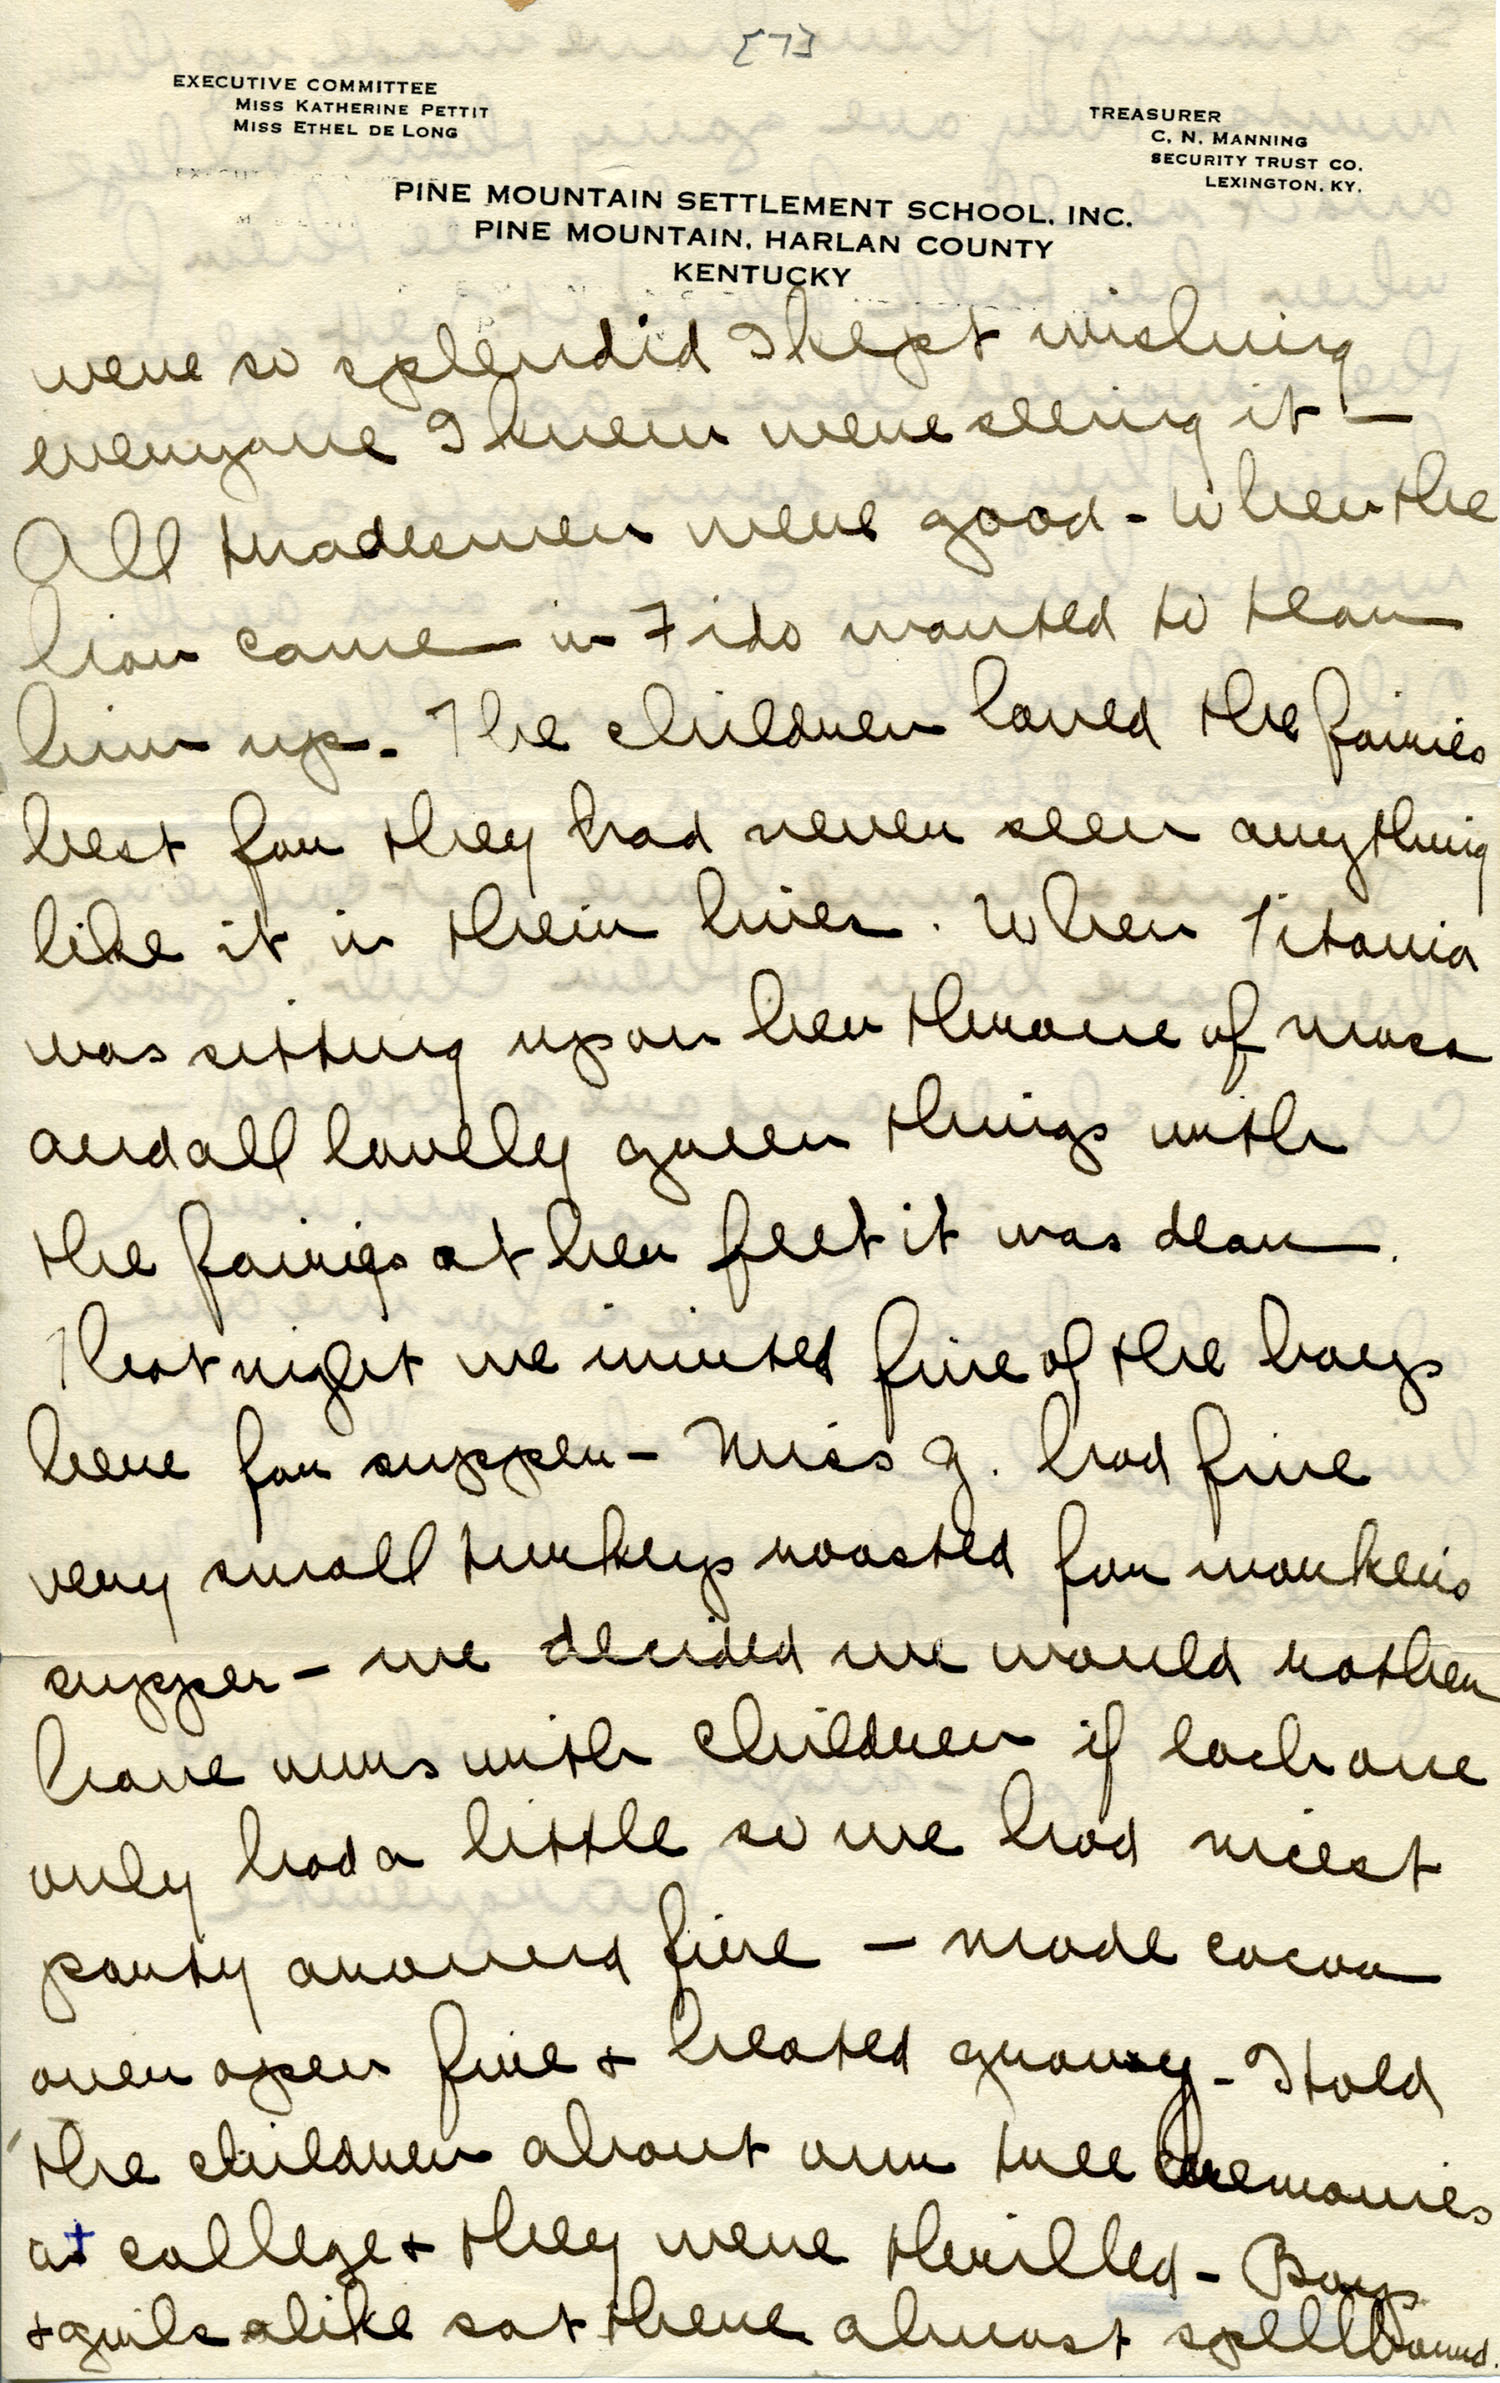 [7]
EXECUTIVE COMMITTEE
MISS KATHERINE PETTIT
MISS ETHEL DE LONG
TREASURER
C. N. MANNING
SECURITY TRUST CO.
LEXINGTON, KY.
PINE MOUNTAIN SETTLEMENT SCHOOL, INC.
PINE MOUNTAIN, HARLAN COUNTY
KENTUCKY
were so splendid I kept wishing
everyone I knew were seeing it –
All tradesmen were good - When the
lion came in Fido wanted to tear
him up. The children loved the fairies
best for they had never seen anything
like it in their lives. When Titania
was sitting upon her throne of moss
and all lovely green things with
the fairies at her feet it was dear.
That night we invited five of the boys
here for supper – Miss G. had five
very small turkeys roasted for workers
supper – we decided we would rather
have ours with children if each one
only had a little so we had nicest
party around fire – made cocoa
over open fire & heated gravy - I told
the children about our tree ceremonies
at college & they were thrilled - Boys
& girls alike sat there almost spellbound.